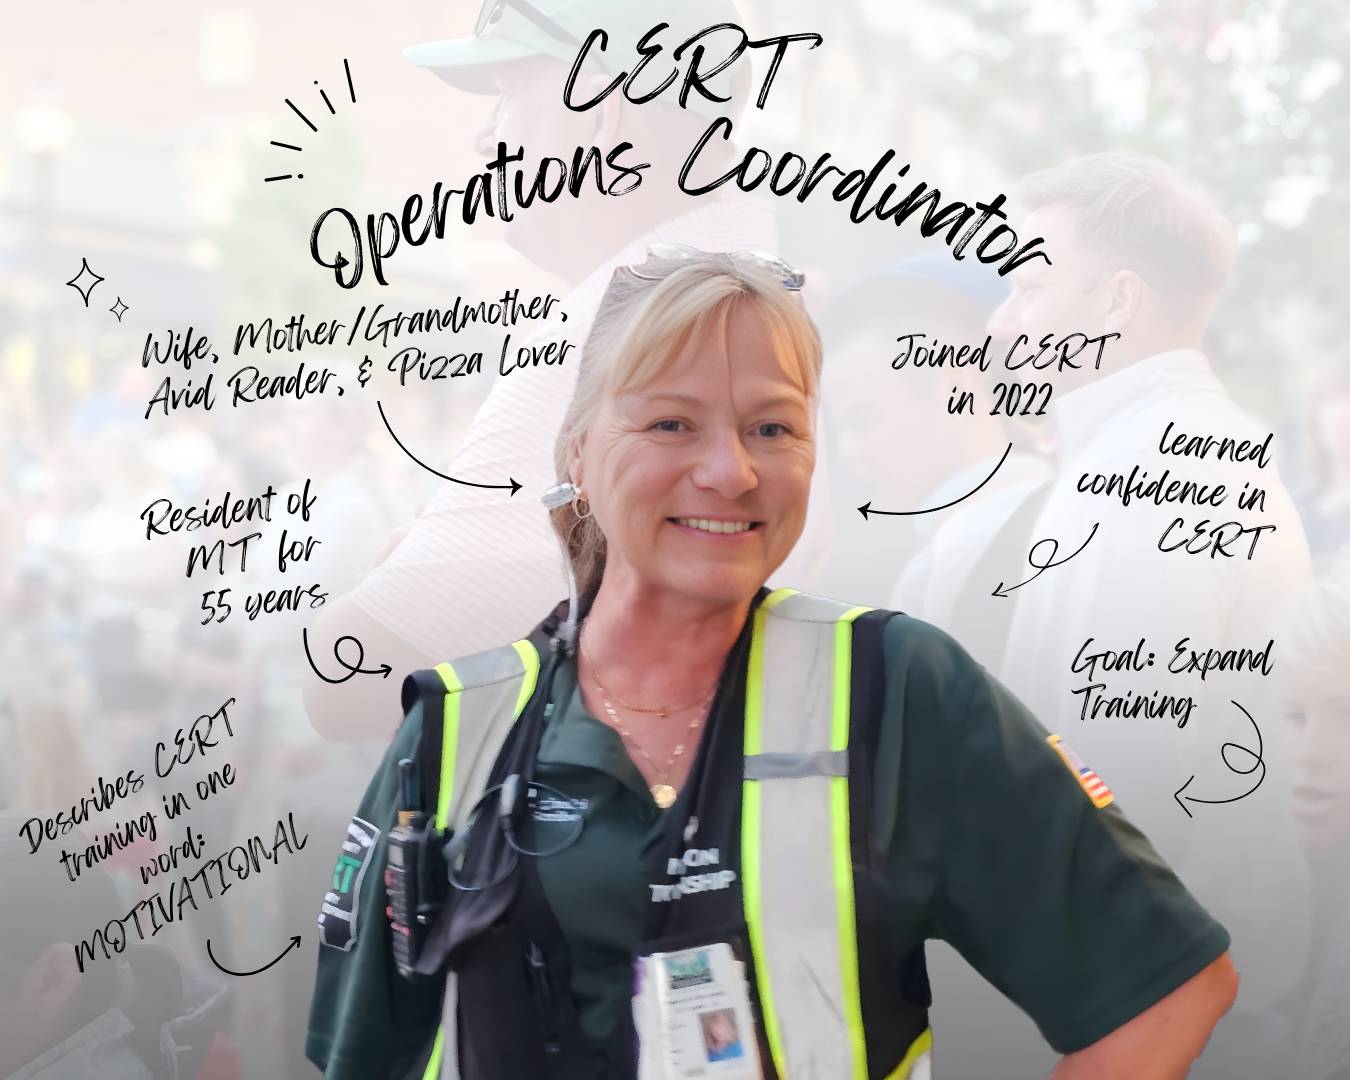 CERT
Operations Coordinator
Wife, Mother/Grandmother,
Avid Reader, & Pizza Lover
Joined CERT
in 2022
learned
confidence in
CERT
Resident of
MT for
55 years
Goal: Expand
Training
Describes CERT
training in one
word:
MOTIVATIONAL